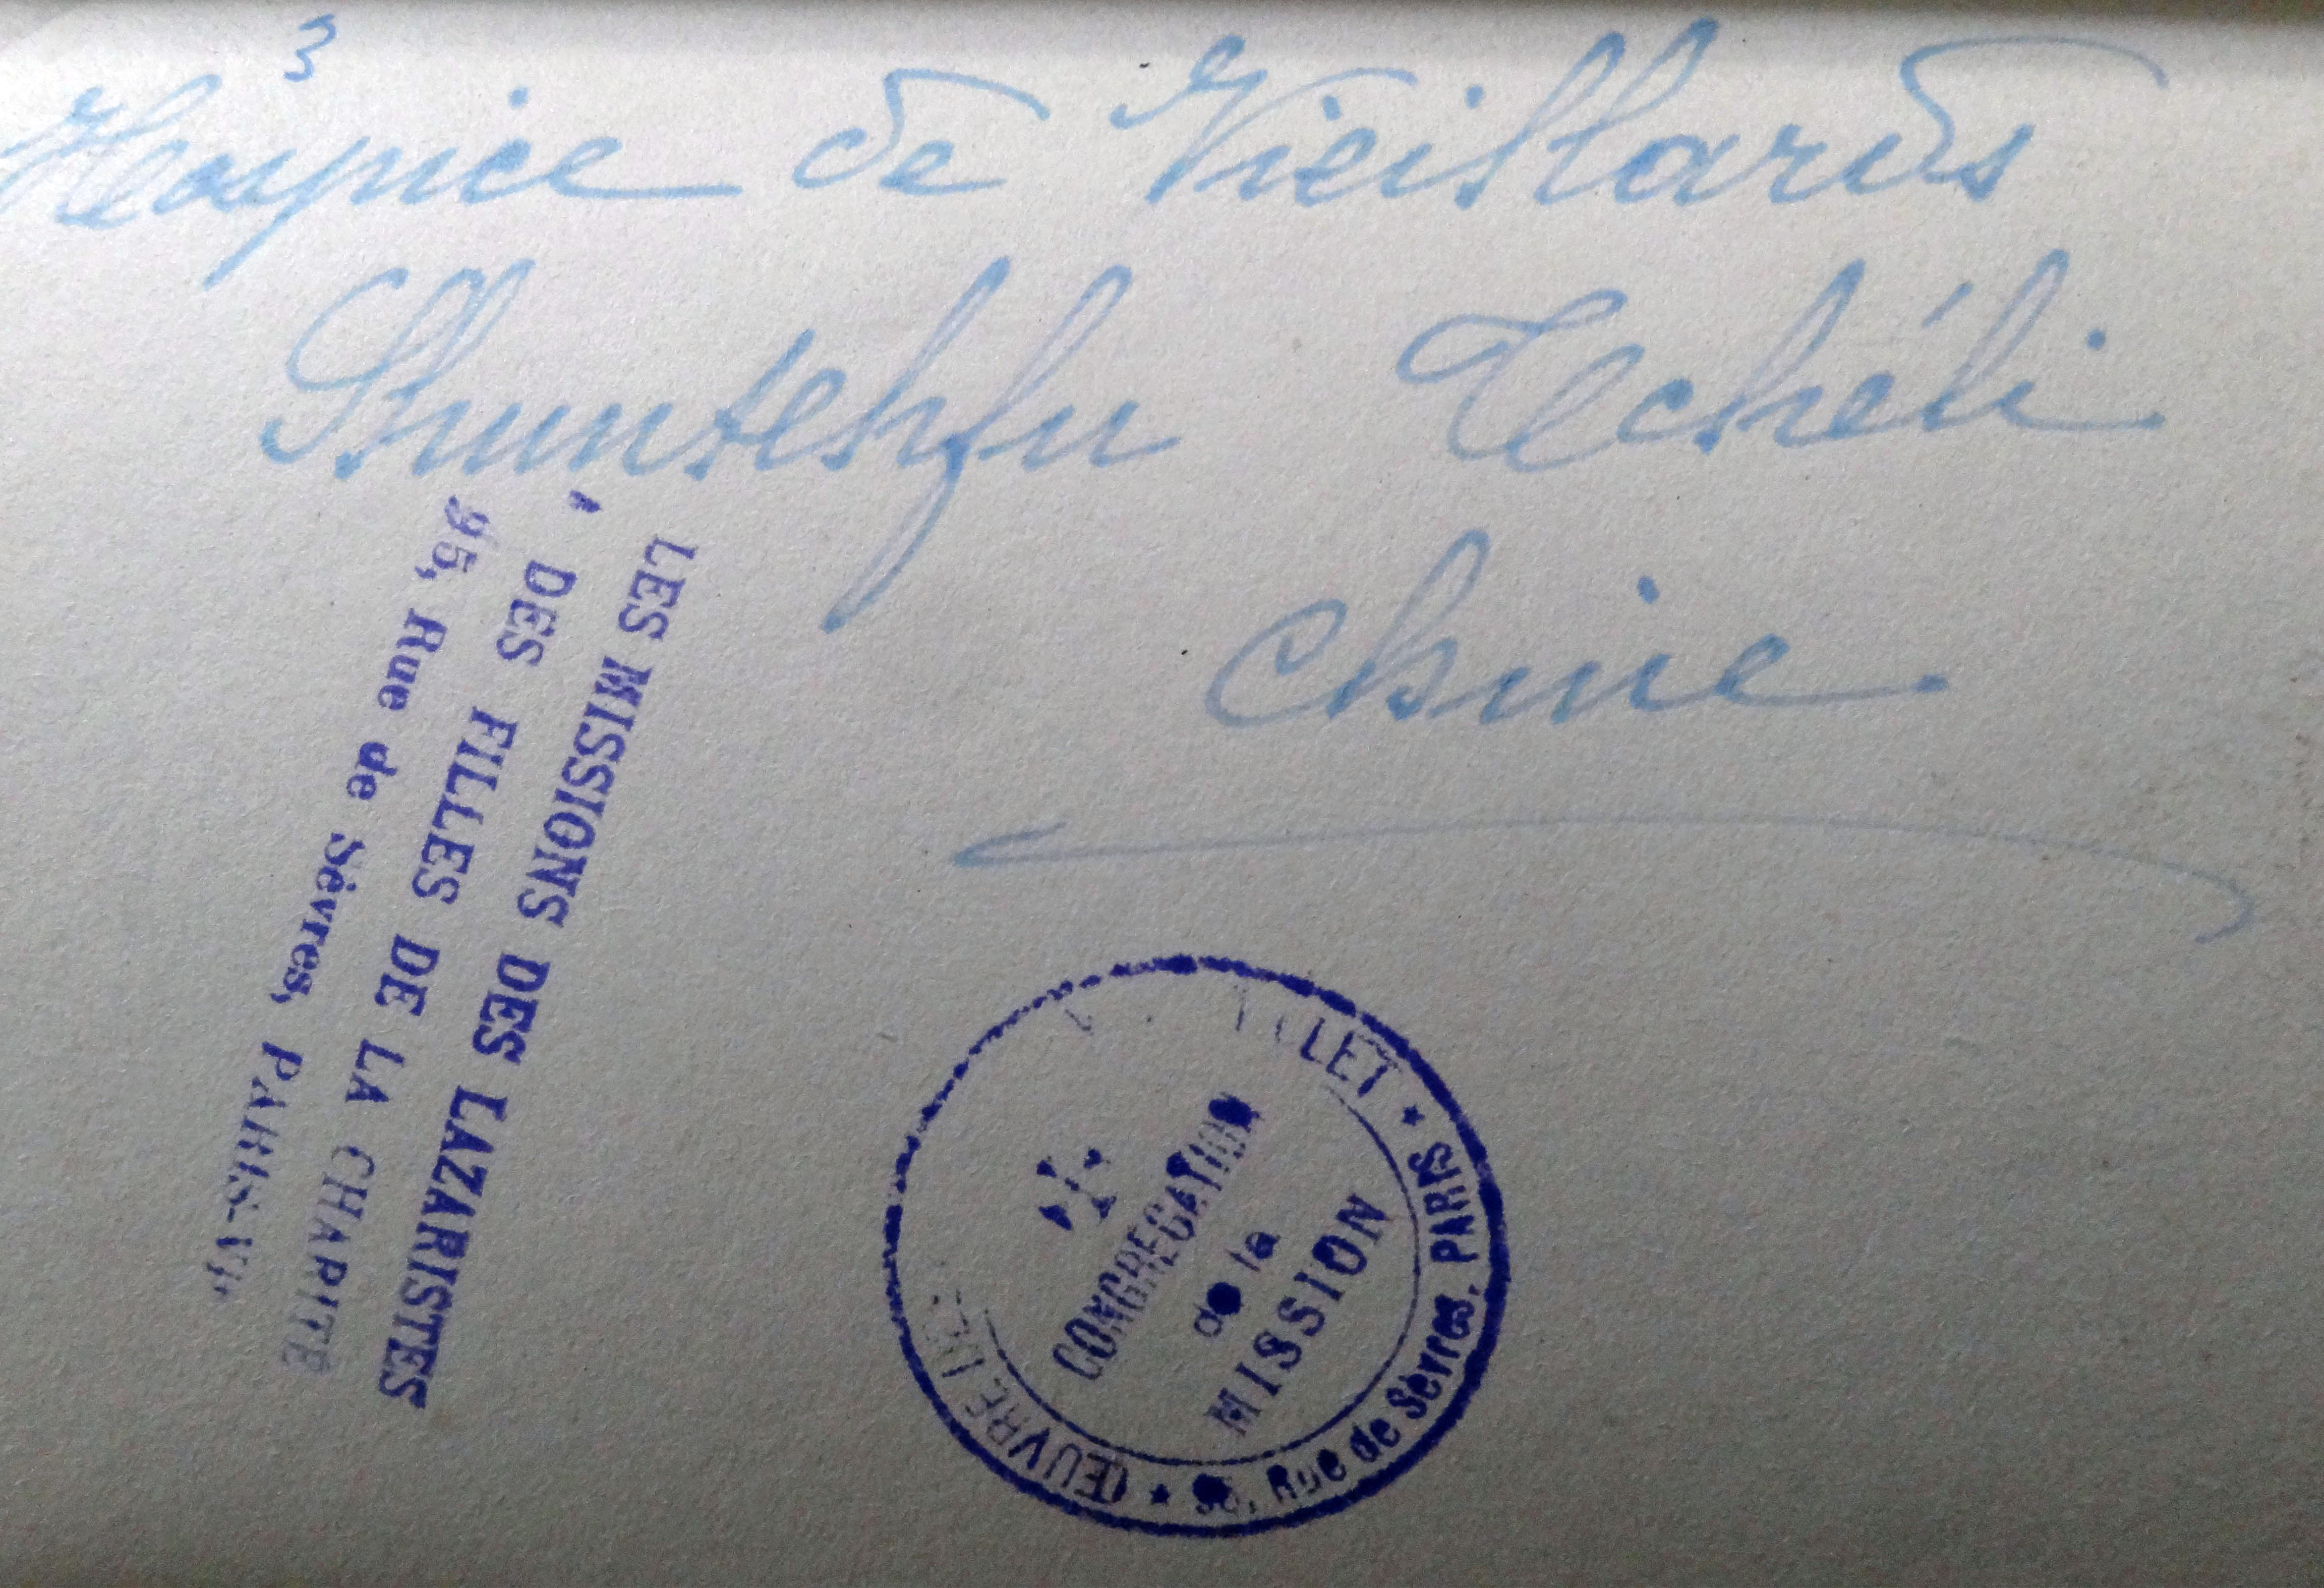 3
Hospice de Vieillards
Shuntehfu Tcheli
Chine
LES MISSIONS DES LAZARISTES
DES FILLES DE LA CHARITÉ
95, Rue de Sèvres, PARIS-VIe
ŒUVRE
CONGRÉGATION
de la
MISSION
95, Rue de Sèvres, PARIS